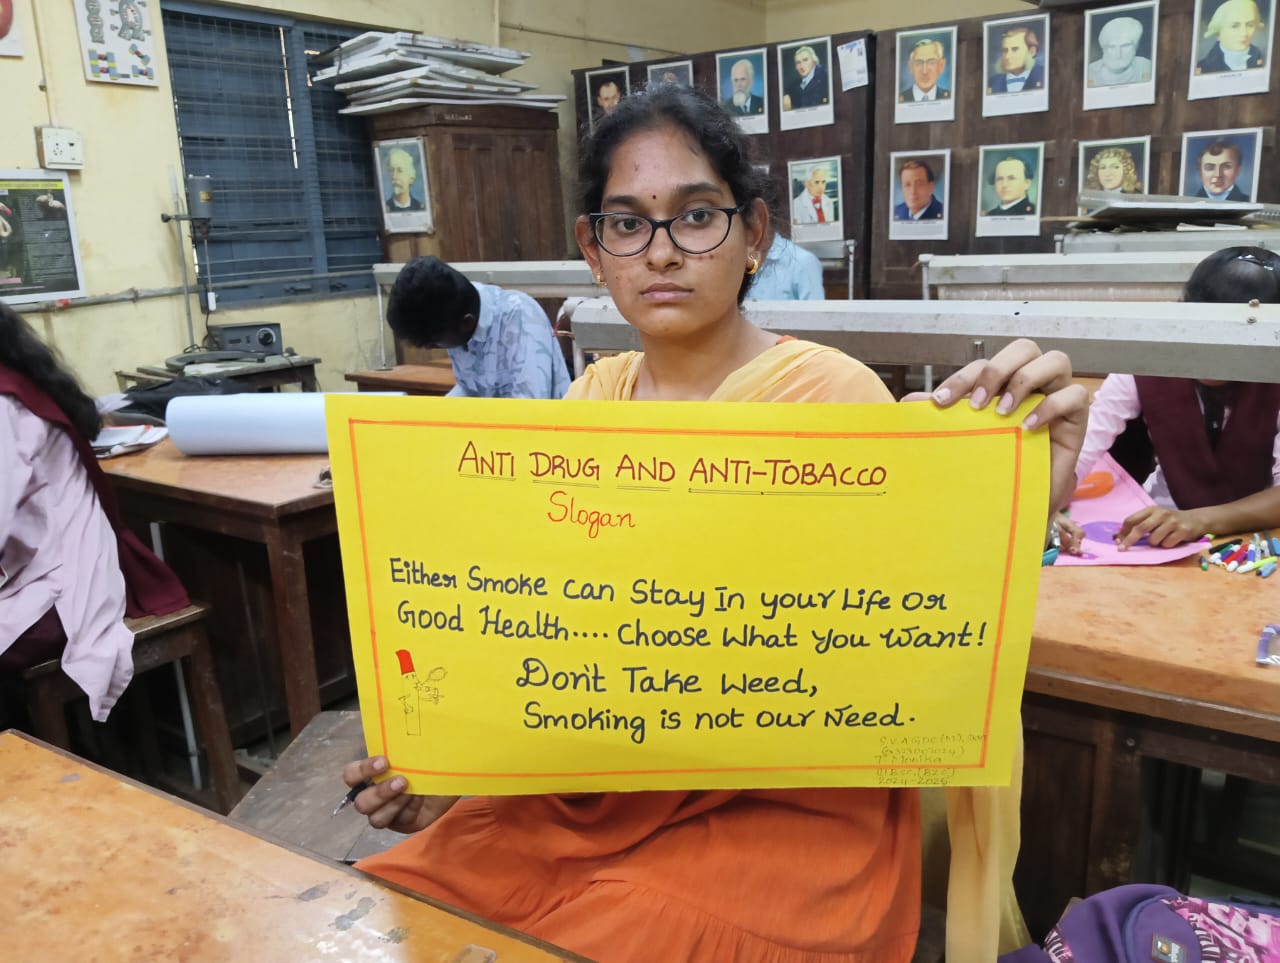 ANTI DRUG AND ANTI-TOBACCO
Slogan
Either Smoke can Stay In your Life Or
Good Health.... Choose What You Want!
Don't Take Weed,
Smoking is not our Need.
T. Monika
2024-2025